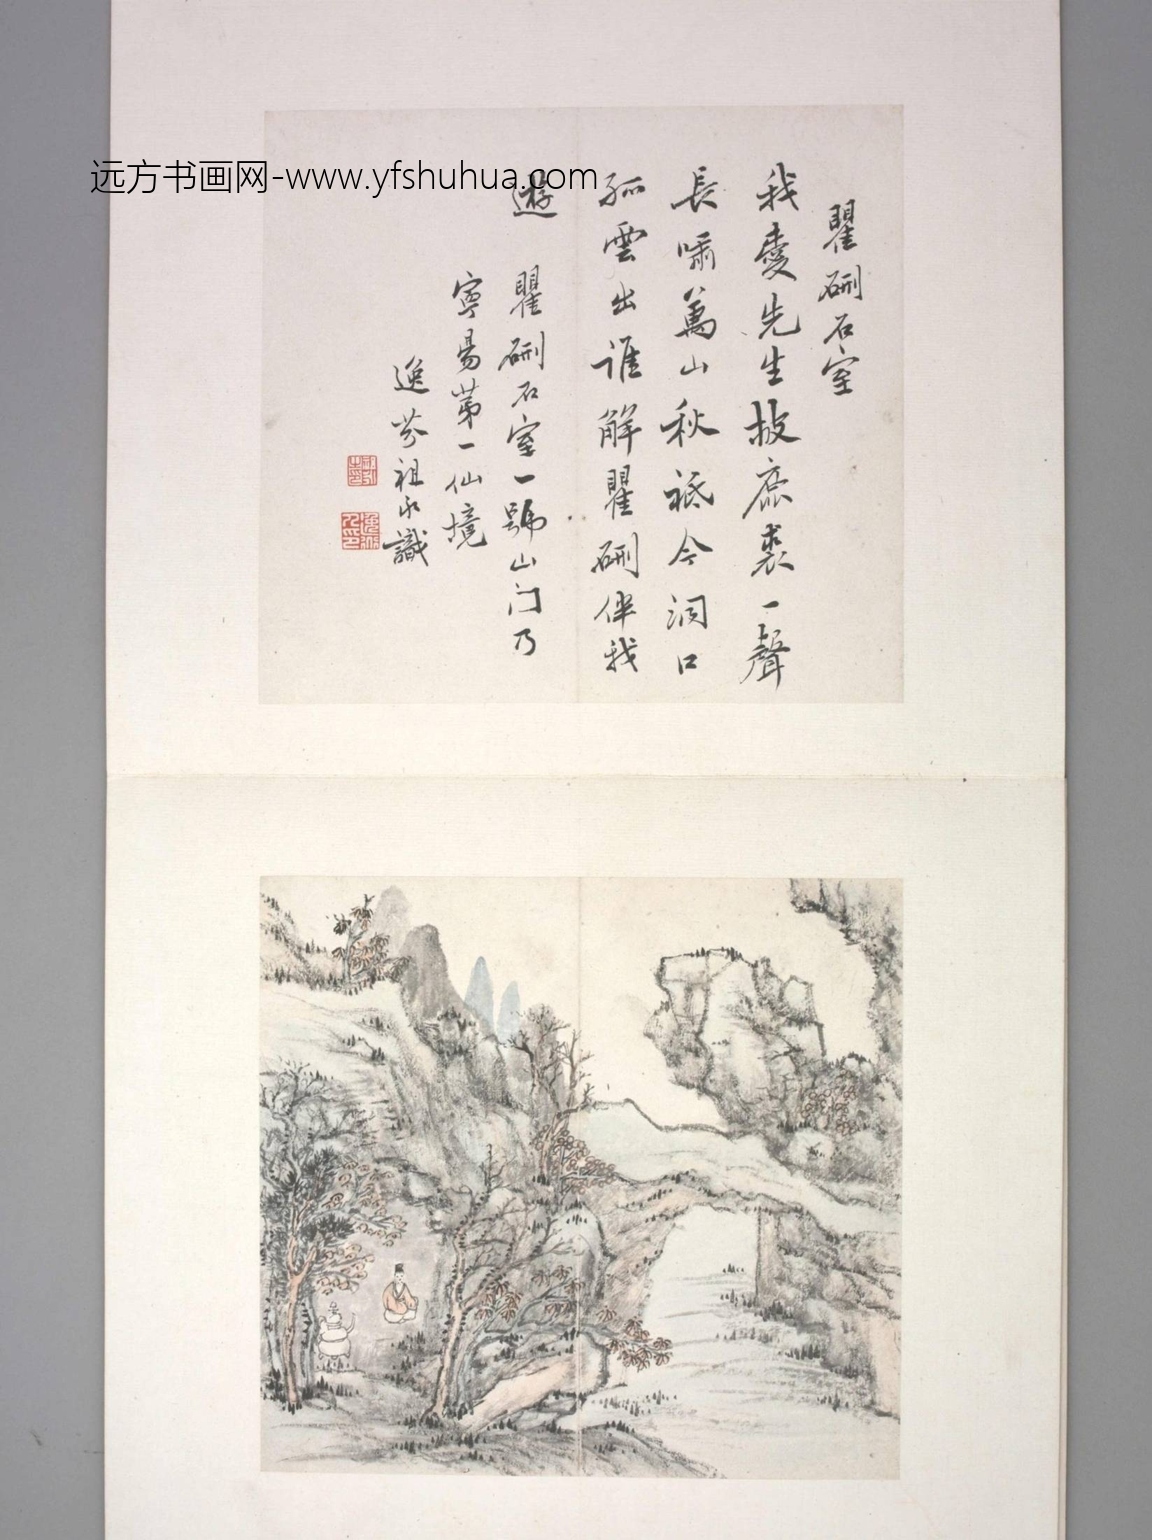 远方书画网-www.yfshuhua.com
瞿硎石室
我愛先生披鹿裘一聲
長嘯萬山秋祗今洞口
孤雲出誰解瞿硎伴我
遊
瞿硎石室一號山门乃
寧昜苐一仙境
逸芬祖永識